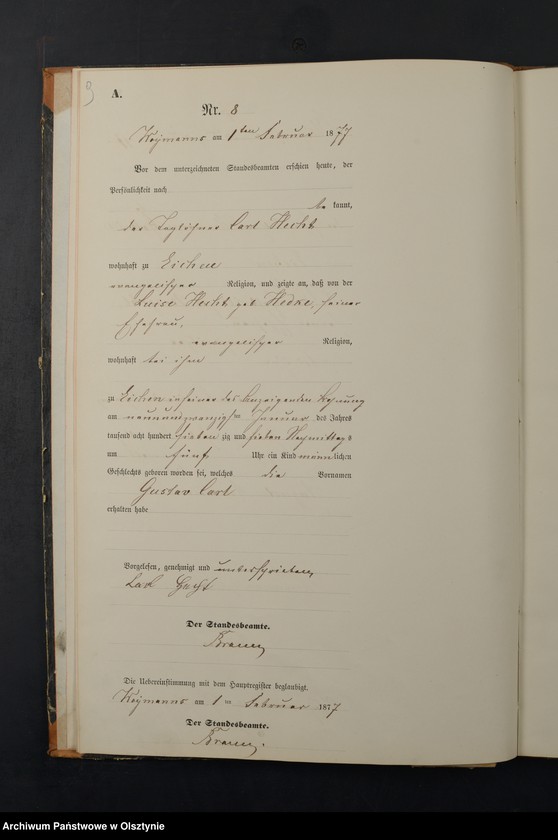 9
A.
Nr. 8
am 1ten Februar 1877
Vor dem unterzeichneten Standesbeamten erschien heute, der
Persönlichkeit nach
be kannt,
der Tagelöhner Carl Hecht
wohnhaft zu Eichen
evangelischer Religion, und zeigte an, daß von der
Luise Hecht geb. seiner
Ehefrau,
evangelischer Religion,
wohnhaft bei ihm
zu Eichen in seiner des Anzeigenden Wohnung
am neunundzwanzigsten Januar des Jahres
tausend acht hundert sieben zig und sieben Nachmittags
um fünf Uhr ein Kind männlichen
Geschlechts geboren worden sei, welches die Vornamen
Gustav Carl
erhalten habe
Vorgelesen, genehmigt und unterschrieben
Carl Hecht
Der Standesbeamte.
Die Uebereinstimmung mit dem Hauptregister beglaubigt.
am 1ten Februar 1877
Der Standesbeamte.
Archiwum Państwowe w Olsztynie